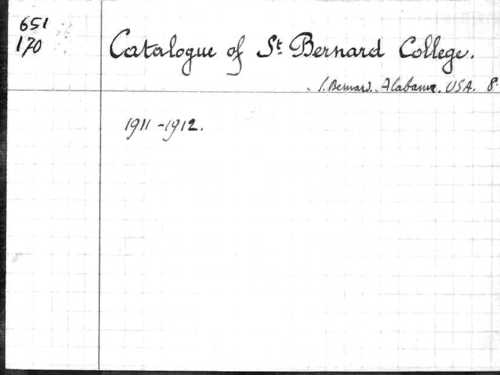 651
170
Catalogue of St. Bernard College.
S. Bernard. Alabama. USA. 8.
1911-1912.